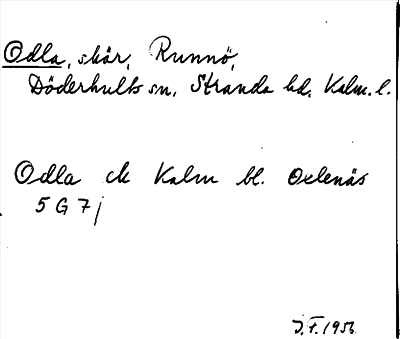 Odla, skär, Runnö,
Döderhults sn, Stranda hd, Kalm. l.
Odla ek Kalm bl. Oxlenäs
5 G 7 j
J.F. 1956